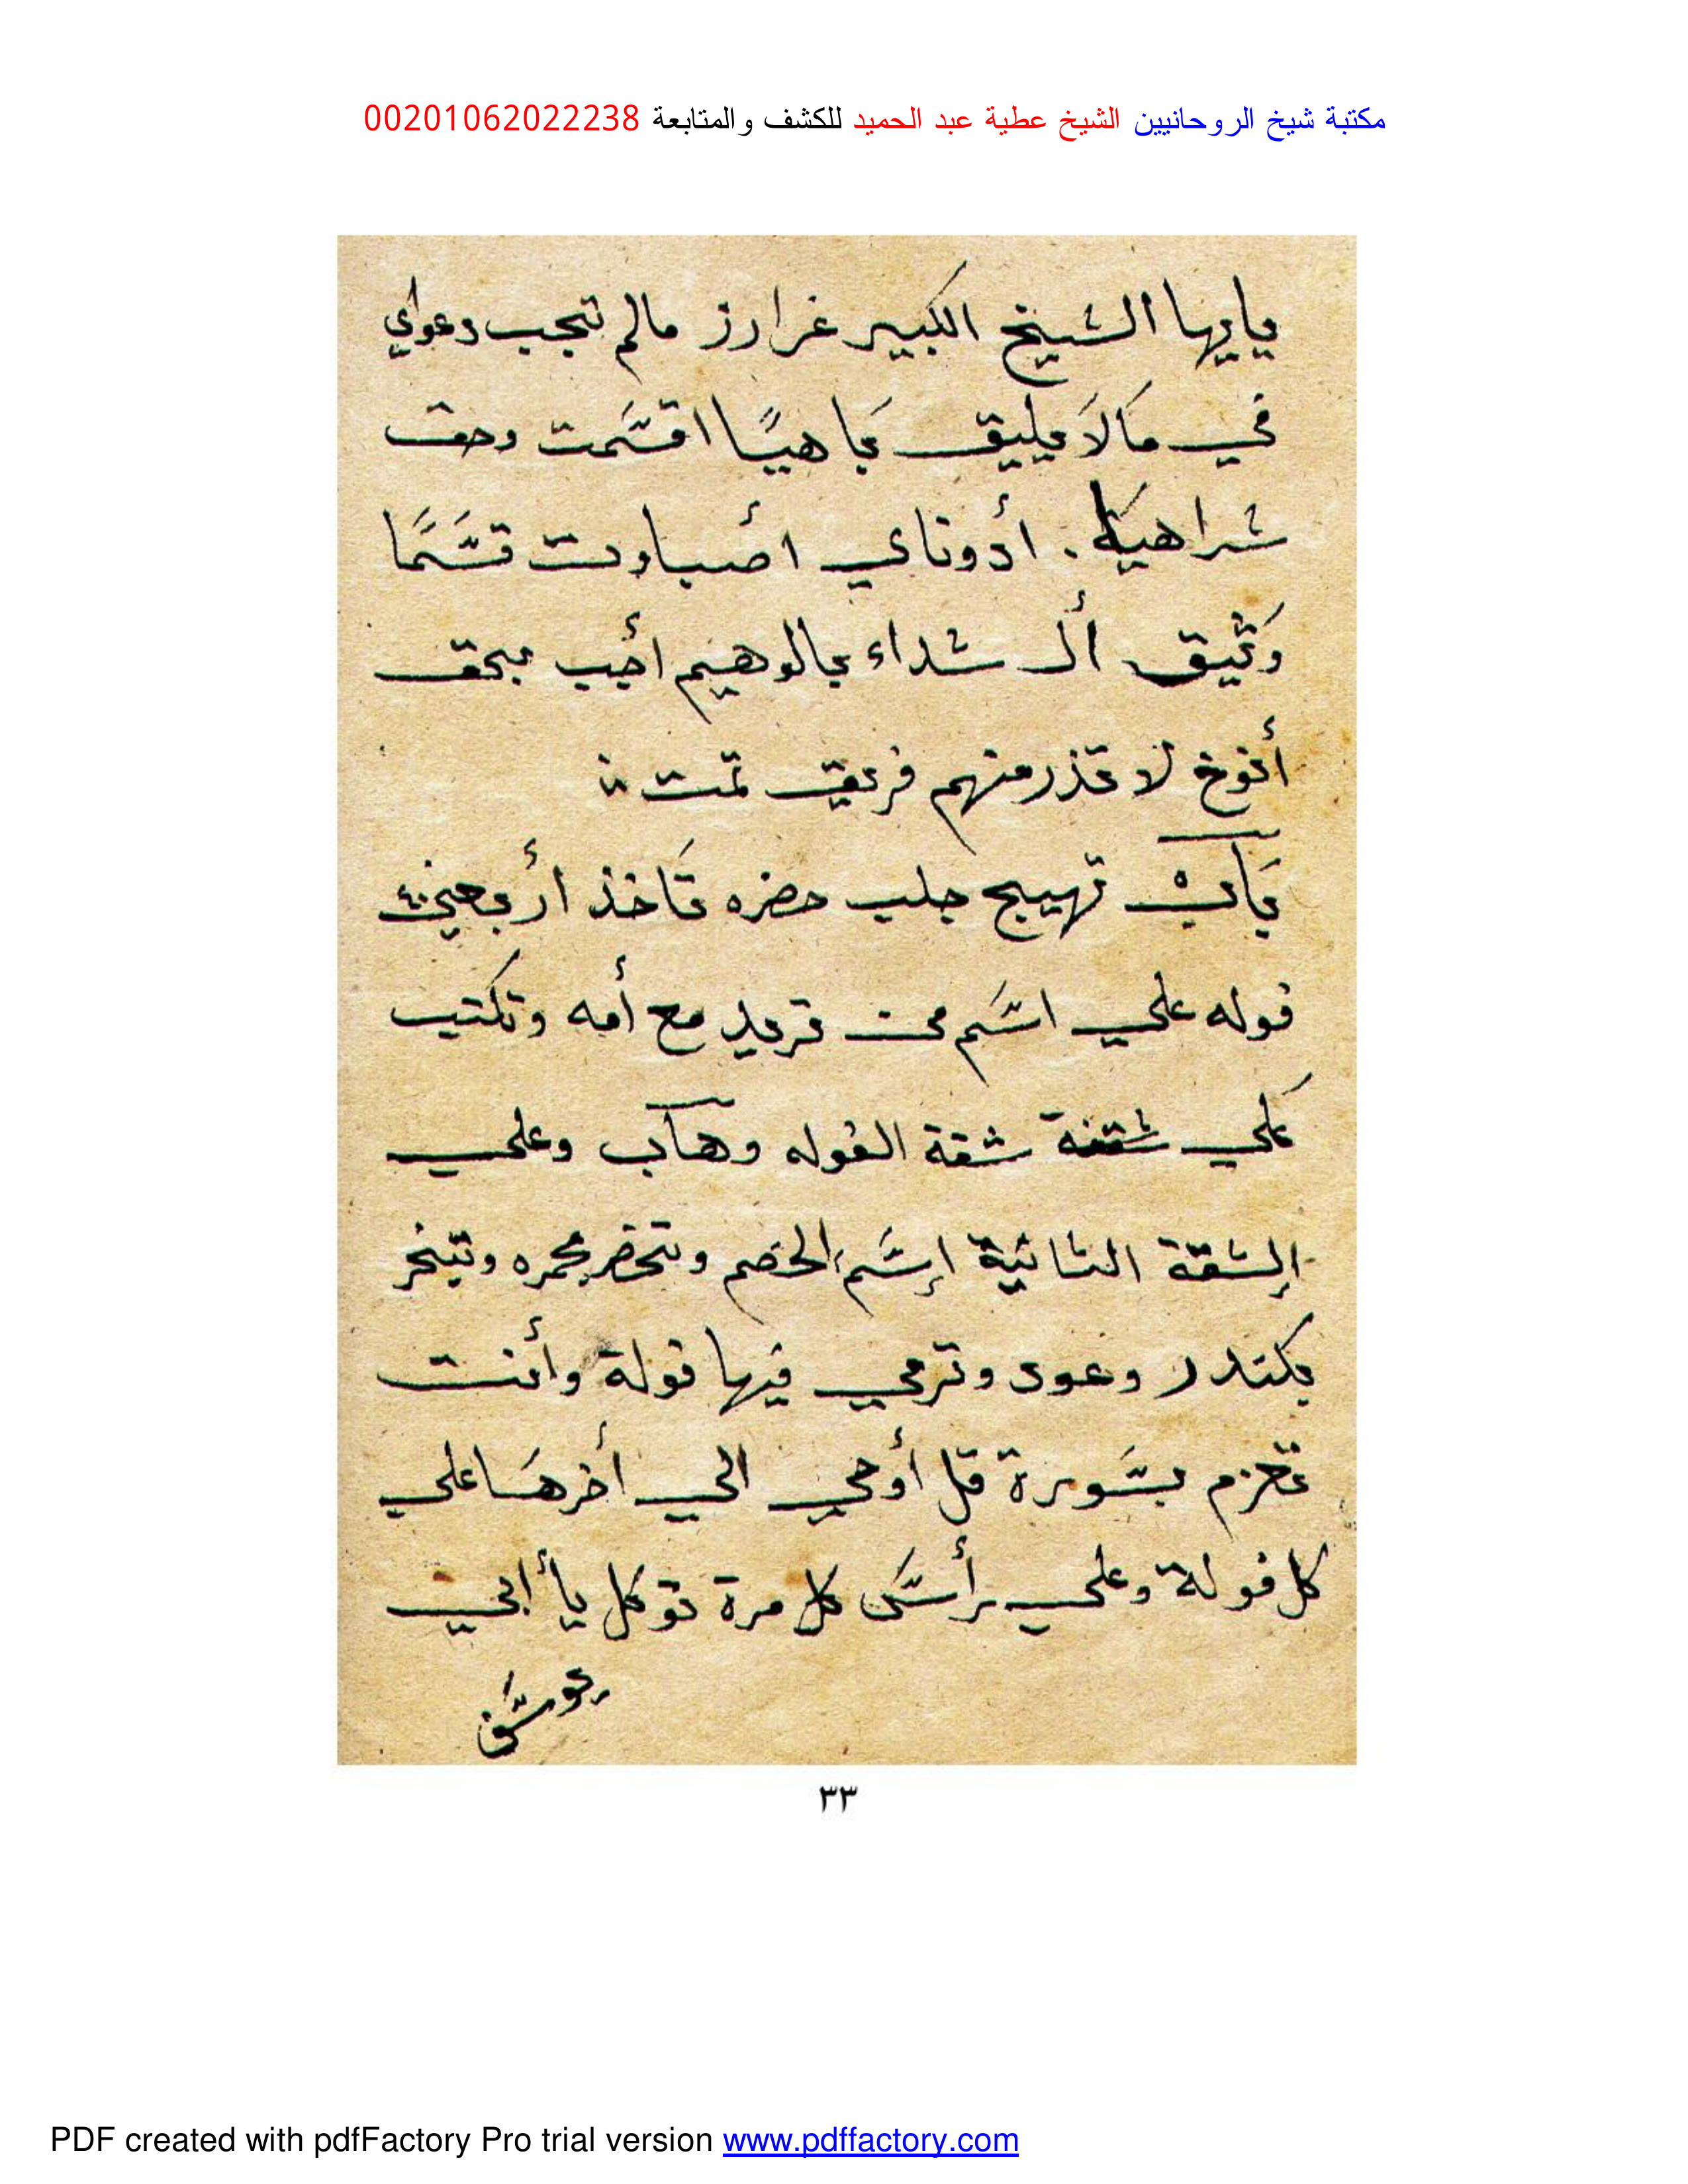 مكتبة شيخ الروحانيين الشيخ عطية عبد الحميد للكشف والمتابعة 00201062022238
يايها الشيخ الكبير غرارز مالم تجب دعواي
في مَا لَا يليق يَاهيًا اقسَمت وحق
شراهيا . أدوناي أصباوت قسَمًا
وَثيق أل شداء يالوهيم أجب بحق
أنوخ لا تذر منهم فريق تمت
بَابْ تهييج جلب حضره تَاخذ أربعين ٤٠
فوله علي اسَم من تريد مع أمه وتكتب
علي شقة الفوله وهاب وعلي
الشقة الثانية إسَم الخصم وتحضر مجمره وتبخر
بكندر وعود وترمي فيها فولة وأنت
تعزم بسَورة قل أوحي الي أخرهَا علي
كل فولة وعلي رأسَ كل مرة توكل يا أبي
٣٣
PDF created with pdfFactory Pro trial version www.pdffactory.com